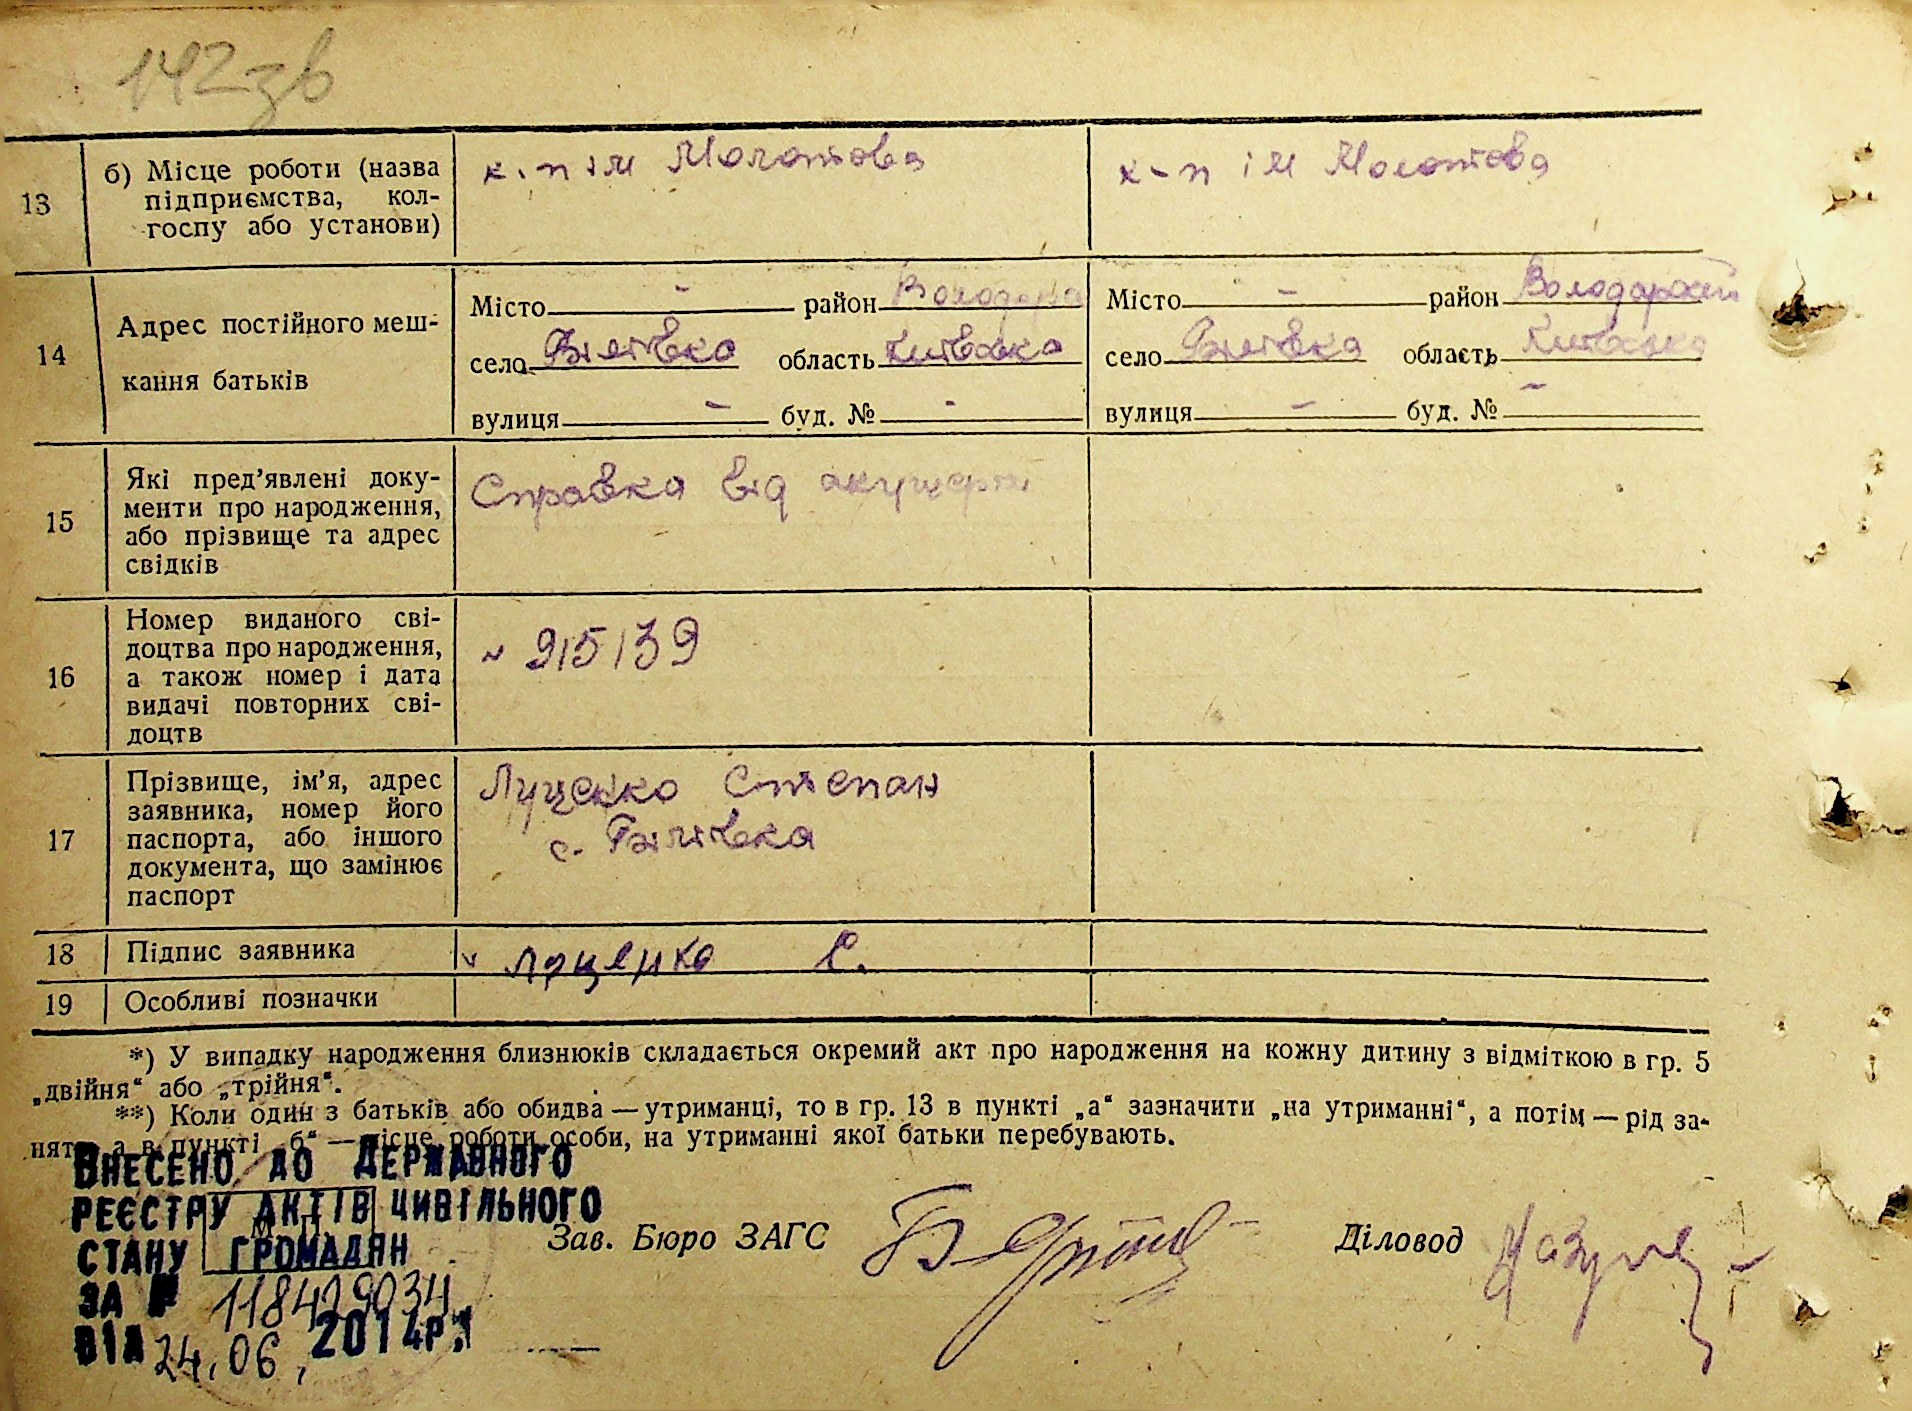 142зв
13
б) Місце роботи (назва
підприємства, кол-
госпу або установи)
к-п ім Молотова
к-п ім Молотова
14
Адрес постійного меш-
кання батьків
Місто - район Володарка
село область Київська
вулиця - буд. № -
Місто - район Володарский
село область Київська
вулиця - буд. № -
15
Які пред’явлені доку-
менти про народження,
або прізвище та адрес
свідків
Справка від акушерки
16
Номер виданого сві-
доцтва про народження,
а також номер і дата
видачі повторних сві-
доцтв
№ 915139
17
Прізвище, ім’я, адрес
заявника, номер його
паспорта, або іншого
документа, що замінює
паспорт
Луценко Степан
с.
18
Підпис заявника
v Луценко С.
19
Особливі позначки
*) У випадку народження близнюків складається окремий акт про народження на кожну дитину з відміткою в гр. 5
„двійня“ або „трійня“.
**) Коли один з батьків або обидва — утриманці, то в гр. 13 в пункті „а“ зазначити „на утриманні“, а потім — рід за-
нять, а в пункті „б“ — місце роботи особи, на утриманні якої батьки перебувають.
Внесено до Державного
реєстру актів цивільного
стану громадян
за № 118429034
від 24.06. 2014р.
М. П.
Зав. Бюро ЗАГС
Діловод